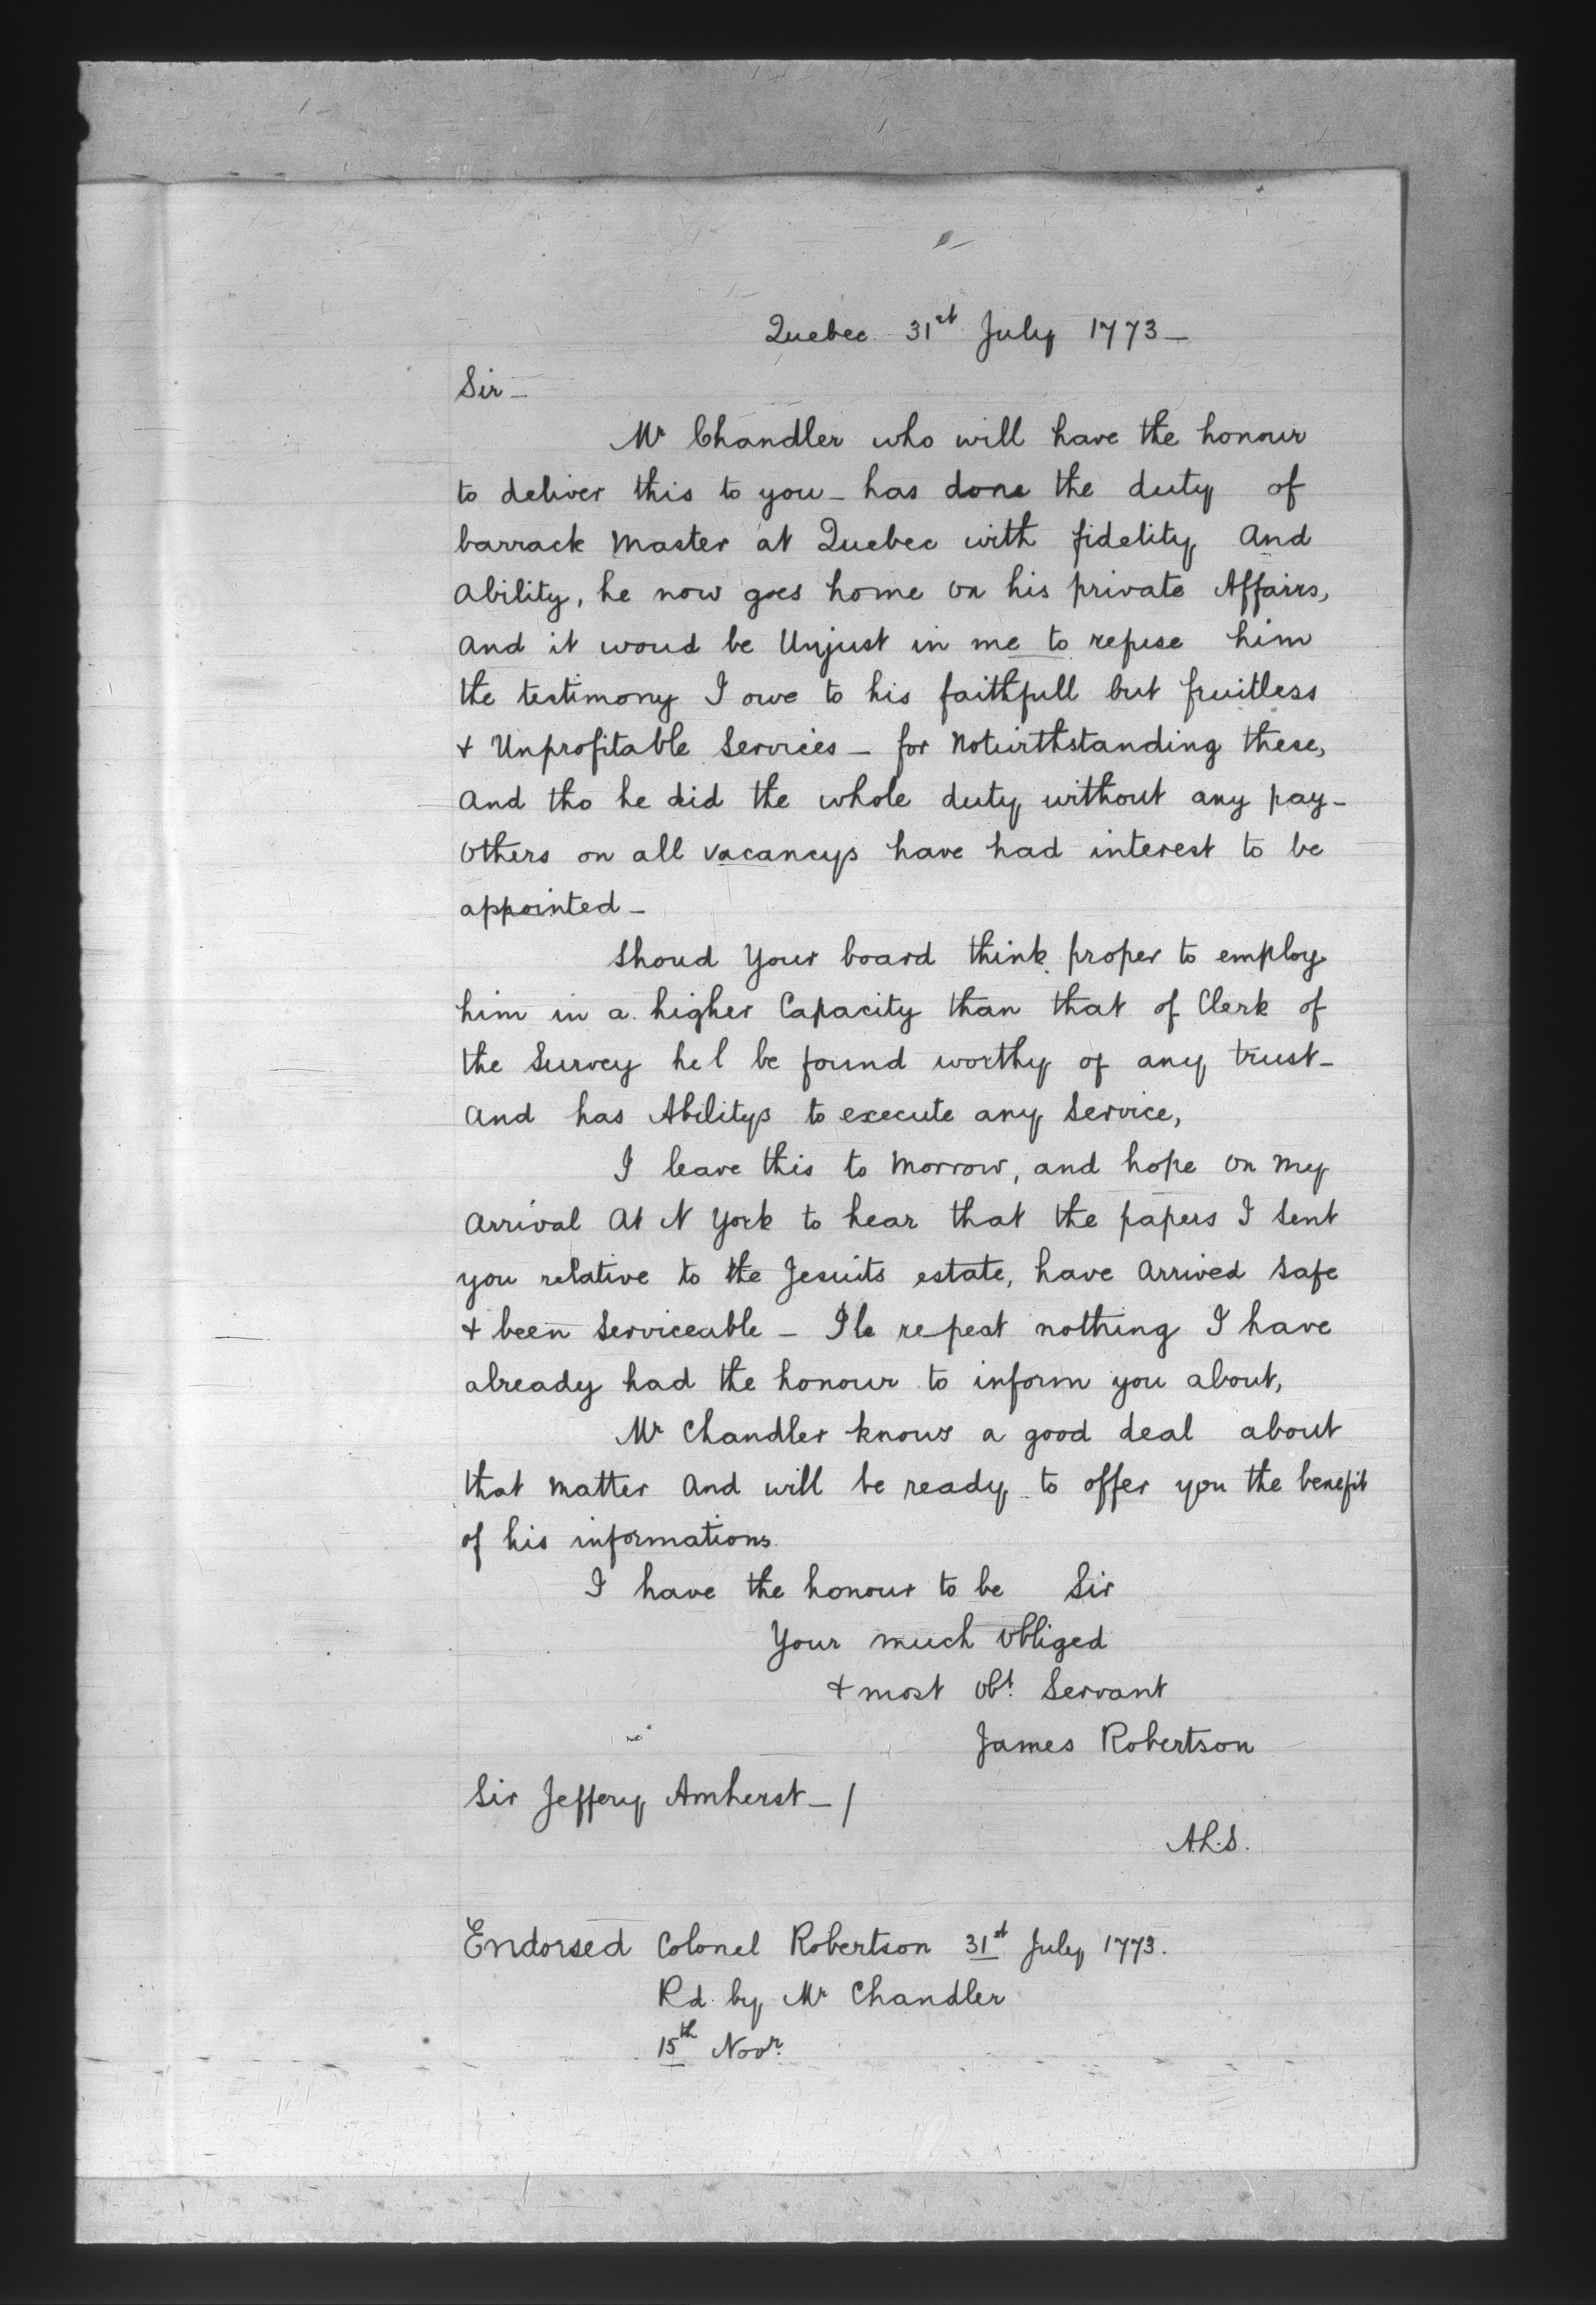 Quebec 31st July 1773 —
Sir —
Mr Chandler who will have the honour
to deliver this to you — has done the duty of
barrack Master at Quebec with fidelity And
Ability, he now goes home on his private Affairs,
And it woud be Unjust in me to refuse him
the testimony I owe to his faithfull but fruitless
& Unprofitable Services — for Notwirthstanding these,
And tho he did the whole duty without any pay —
Others on all vacancys have had interest to be
appointed —
Shoud Your board think proper to employ
him in a higher Capacity than that of Clerk of
the Survey he l be found worthy of any trust —
And has Abilitys to execute any Service,
I leave this to Morrow, and hope on My
Arrival At N York to hear that the papers I Sent
you relative to the Jesuits estate, have Arrived Safe
& been Serviceable — I le repeat nothing I have
already had the honour to inform you about,
Mr Chandler knows a good deal about
that Matter And will be ready to offer you the benefit
of his informations
I have the honour to be Sir
Your much Obliged
& most Obt. Servant
James Robertson
Sir Jeffery Amherst — /
A.L.S.
Endorsed Colonel Robertson 31st July 1773.
Rd by Mr Chandler
15th Novr.